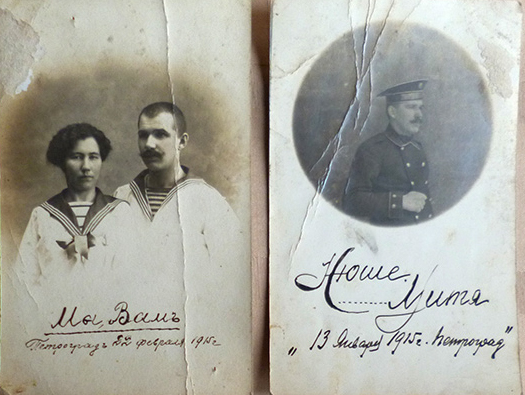 Мы Вамъ
Петроградъ 22 февраля 1915 г
Нюше.
Митя
„ 13 Января 1915 г. Петроград"